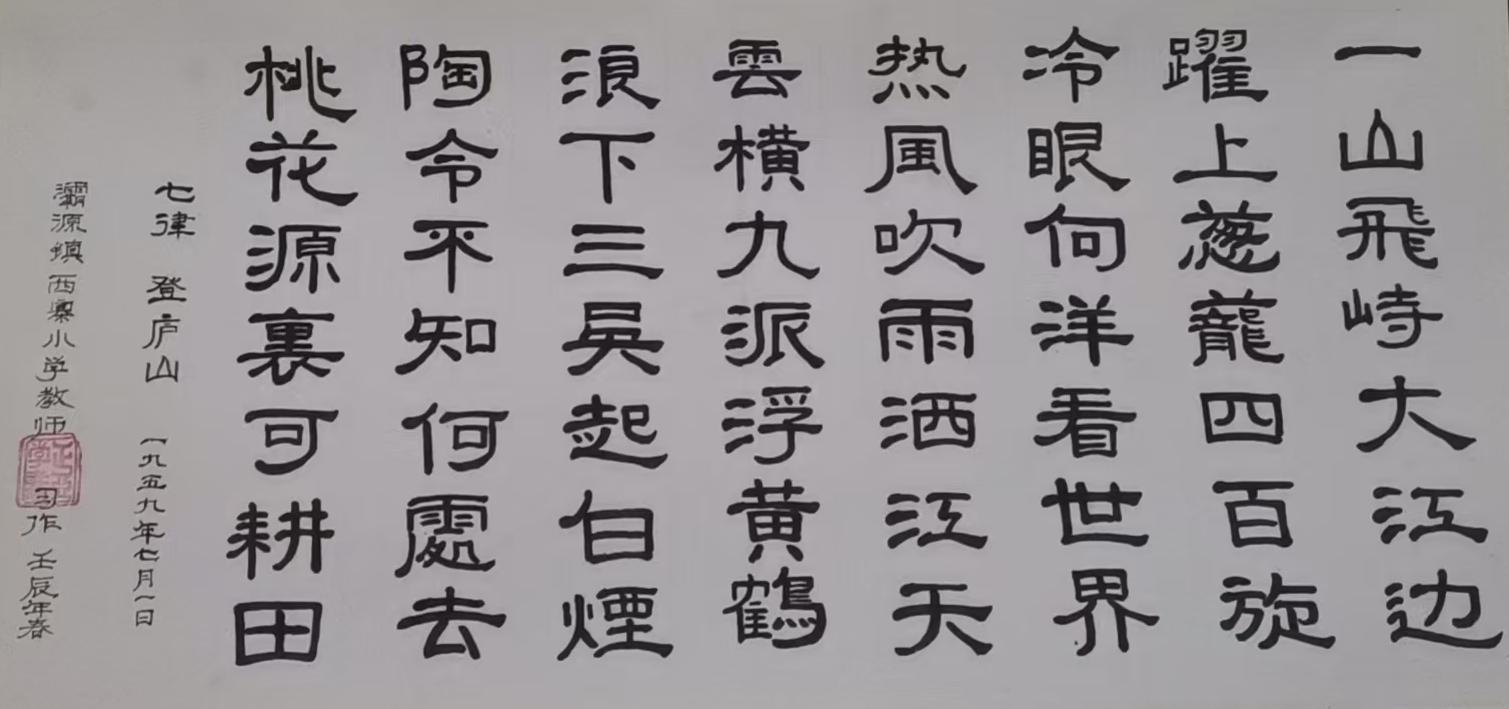 一山飛峙大江边
躍上葱蘢四百旋
冷眼向洋看世界
热風吹雨洒江天
雲横九派浮黄鶴
浪下三吴起白煙
陶令不知何處去
桃花源裏可耕田
七律 登庐山 一九五九年七月一日
灞源镇西寨小学教师 习作 壬辰年春